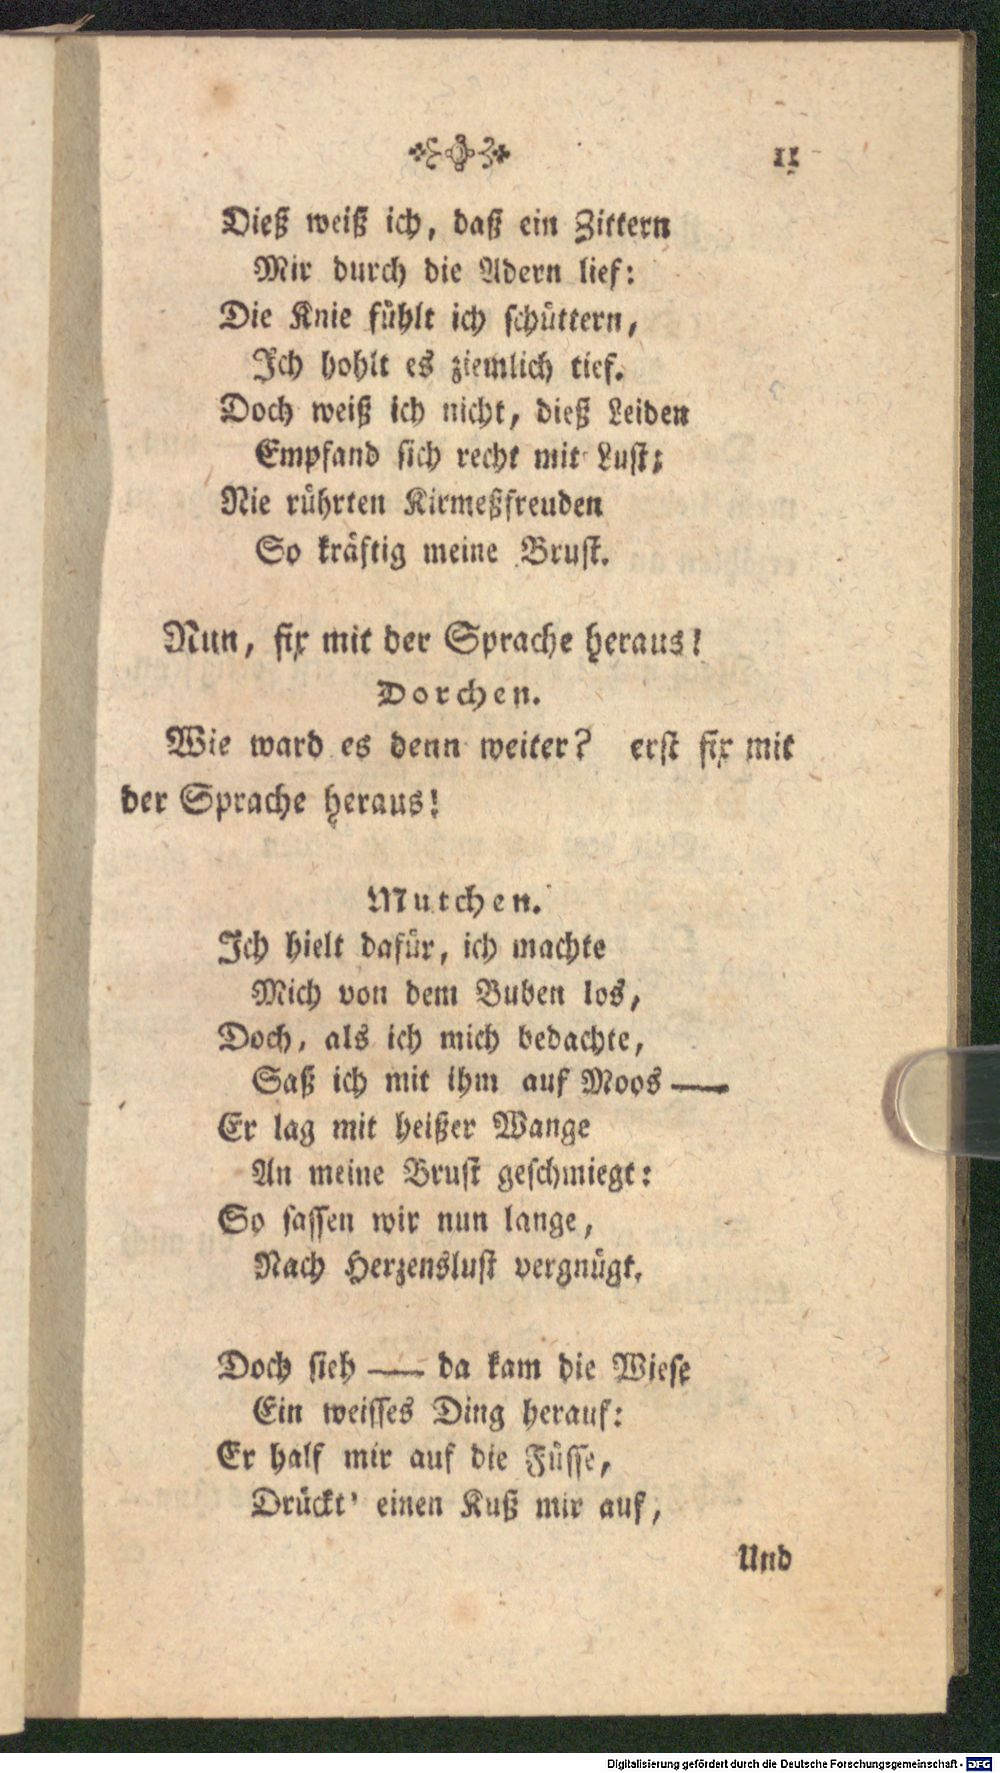 11
Dieß weiß ich, daß ein Zittern
Mir durch die Adern lief:
Die Knie fühlt ich schüttern,
Ich hohlt es ziemlich tief.
Doch weiß ich nicht, dieß Leiden
Empfand sich recht mit Lust;
Nie rührten Kirmeßfreuden
So kräftig meine Brust.
Nun, fix mit der Sprache heraus!
Dorchen.
Wie ward es denn weiter? erst fix mit
der Sprache heraus!
Mutchen.
Ich hielt dafür, ich machte
Mich von dem Buben los,
Doch, als ich mich bedachte,
Saß ich mit ihm auf Moos —
Er lag mit heißer Wange
An meine Brust geschmiegt:
So sassen wir nun lange,
Nach Herzenslust vergnügt.
Doch sieh — da kam die Wiese
Ein weisses Ding herauf:
Er half mir auf die Füsse,
Drückt' einen Kuß mir auf,
Und
Digitalisierung gefördert durch die Deutsche Forschungsgemeinschaft - DFG